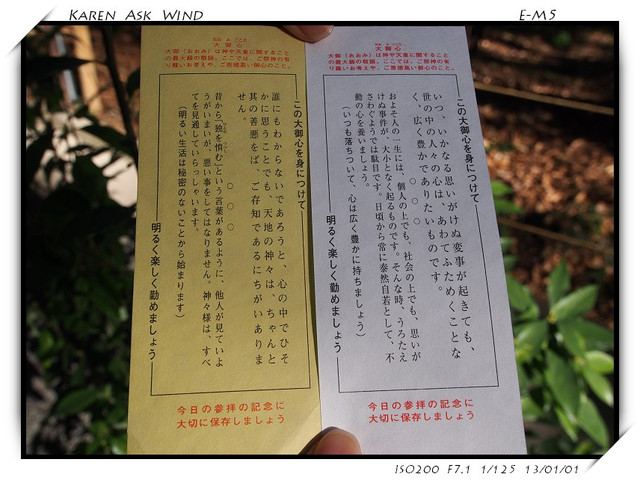 KAREN ASK WIND
E-M5
大御心
大御（おおみ）は神や天皇に関すること
の最大級の敬語。ここでは、ご祭神の有
り難いお考えや、ご意徳高い御心のこと。
この大御心を身につけて
いつ、いかなる思いがけぬ変事が起きても、
世の中の人々の心は、あわてふためくことな
く、広く豊かでありたいものです。
○ ○ ○
およそ人の一生には、個人の上でも、社会の上でも、思いが
けぬ事件が、大小となく起るものです。そんな時、うろたえ
さわぐようでは駄目です。日頃から常に泰然自若として、不
動の心を養いましょう。
（いつも落ちついて、心は広く豊かに持ちましょう）
明るく楽しく勤めましょう
今日の参拝の記念に
大切に保存しましょう
大御心
大御（おおみ）は神や天皇に関すること
の最大級の敬語。ここでは、ご祭神の有
り難いお考えや、ご意徳高い御心のこと。
この大御心を身につけて
誰にもわからないであろうと、心の中でひそ
かに思うことでも、天地の神々は、ちゃんと
其の善悪をば、ご存知であるにちがいありま
せん。
○ ○ ○
昔から「独を慎む」という言葉があるように、他人が見ていよ
うがいまいが、悪い事をしてはなりません。神々様は、すべ
てを見通していらっしゃいます。
（明るい生活は秘密のないことから始まります）
明るく楽しく勤めましょう
今日の参拝の記念に
大切に保存しましょう
ISO200 F7.1 1/125 13/01/01